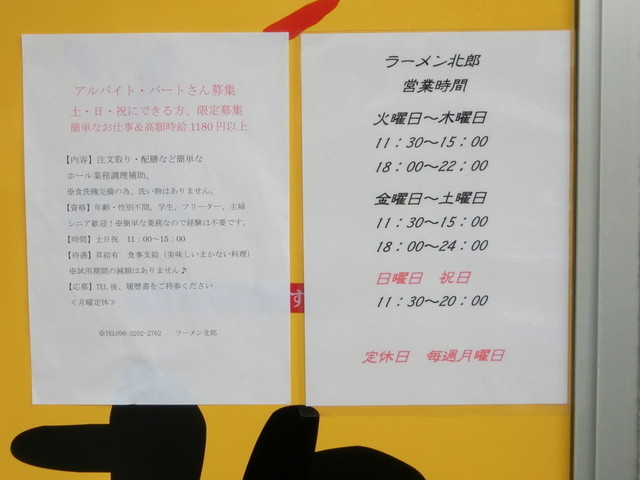 アルバイト・パートさん募集
土・日・祝にできる方、限定募集
簡単なお仕事&高額時給1180円以上
【内容】注文取り・配膳など簡単な
ホール業務調理補助。
※食洗機完備の為、洗い物はありません。
【資格】年齢・性別不問、学生、フリーター、主婦
シニア歓迎！※簡単な業務なので経験は不要です。
【時間】土日祝 11：00～15：00
【待遇】昇給有 食事支給（美味しいまかない料理）
※試用期間の減額はありません♪
【応募】TEL後、履歴書をご持参ください
≪月曜定休≫
※TEL090-3202-2762 ラーメン北郎
す
ラーメン北郎
営業時間
火曜日～木曜日
11：30～15：00
18：00～22：00
金曜日～土曜日
11：30～15：00
18：00～24：00
日曜日 祝日
11：30～20：00
定休日 毎週月曜日